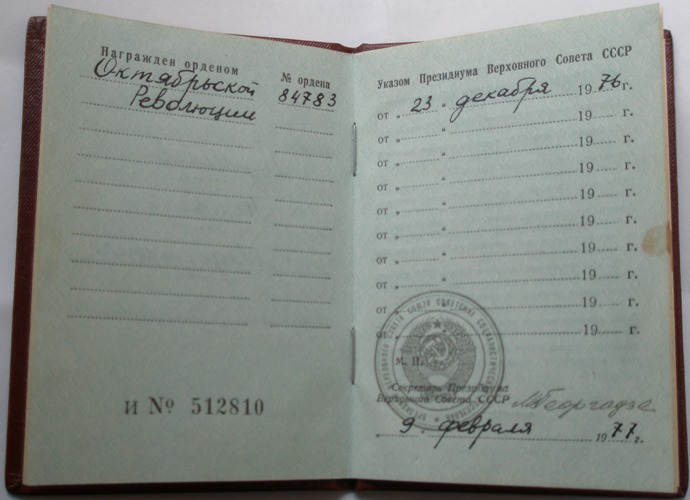 Награжден орденом
Октябрьской
Революции
№ ордена
84783
И № 512810
Указом Президиума Верховного Совета СССР
от „ 23 „ декабря 1976 г.
от „ „ 19 г.
от „ „ 19 г.
от „ „ 19 г.
от „ „ 19 г.
от „ „ 19 г.
от „ „ 19 г.
от „ „ 19 г.
от „ „ 19 г.
от „ „ 19 г.
М. П.
Секретарь Президиума
Верховного Совета СССР
М Георгадзе
„ 9 „ февраля 1977 г.